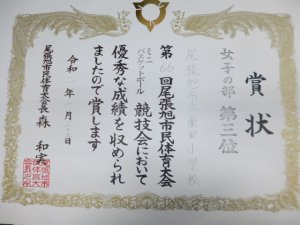 賞状
女子の部 第三位
尾張旭市立東栄小学校
第66回尾張旭市民体育大会
ミニバスケットボール競技会において
優秀な成績を収められ
ましたので賞します
令和 年 月 日
尾張旭市民体育大会長 森 和実